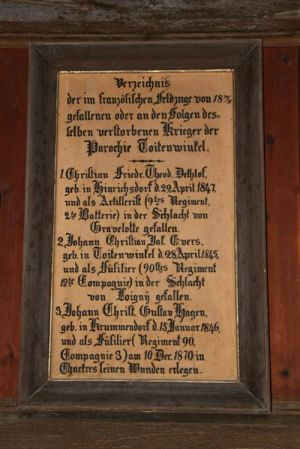 Verzeichnis
der im französischen Feldzuge von 1870/71
gefallenen oder an den Folgen des-
selben verstorbenen Krieger der
Parochie Toitenwinkel.
1. Christian Friedr. Theod. Dethlof,
geb. in Hinrichsdorf d. 29 April 1847,
und als Artillerist (9tes Regiment,
2te Batterie) in der Schlacht von
Gravelotte gefallen.
2. Johann Christian Jof. Evers,
geb. in Toitenwinkel d. 28 April 1845,
und als Füsilier (90stes Regiment
12te Compagnie) in der Schlacht
von Loigny gefallen.
3. Johann Christ. Gustav Hagen,
geb. in Krummendorf d. 15 Januar 1846,
und als Füsilier (Regiment 90,
Compagnie 3) am 10 Dec. 1870 in
Chartres seinen Wunden erlegen.